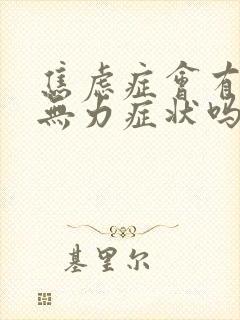 焦虑症會有
無力症状吗
基里尔